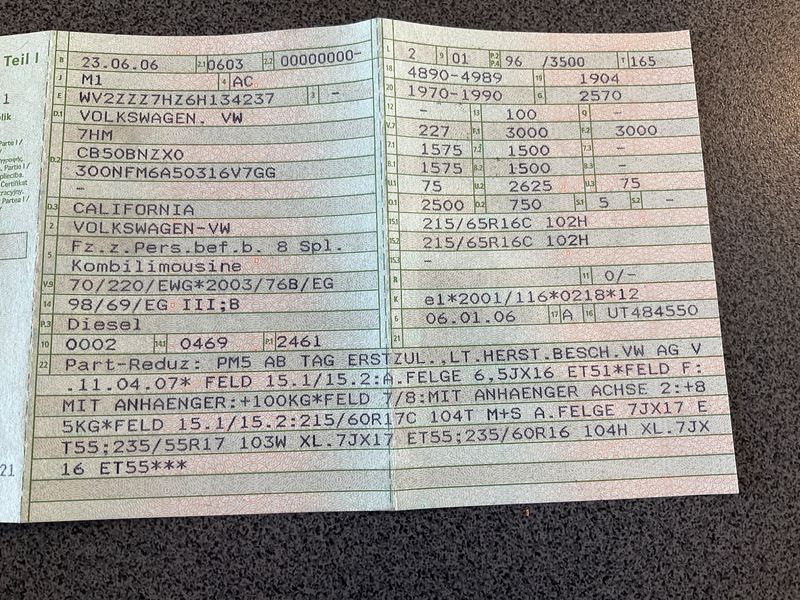 Teil I
B 23.06.06 2.1 0603 2.2 00000000-
J M1 4 AC
E WV2ZZZ7HZ6H134237 3 -
D.1 VOLKSWAGEN. VW
7HM
D.2 CB50BNZX0
300NFM6A50316V7GG
-
D.3 CALIFORNIA
2 VOLKSWAGEN-VW
5 Fz.z.Pers.bef.b. 8 Spl.
Kombilimousine
V.9 70/220/EWG*2003/76B/EG
14 98/69/EG III;B
P.3 Diesel
10 0002 14.1 0469 P.1 2461
L 2 9 01 P.2 P.4 96 /3500 T 165
18 4890-4989 19 1904
20 1970-1990 G 2570
12 - 13 100 Q -
V.7 227 F.1 3000 F.2 3000
7.1 1575 7.2 1500 7.3 -
8.1 1575 8.2 1500 8.3 -
U.1 75 U.2 2625 U.3 75
O.1 2500 O.2 750 S.1 5 S.2 -
15.1 215/65R16C 102H
15.2 215/65R16C 102H
15.3 -
R 11 0/-
K e1*2001/116*0218*12
6 06.01.06 17 A 16 UT484550
21
22 Part-Reduz: PM5 AB TAG ERSTZUL.,LT.HERST.BESCH.VW AG V
.11.04.07* FELD 15.1/15.2:A.FELGE 6,5JX16 ET51*FELD F:
MIT ANHAENGER:+100KG*FELD 7/8:MIT ANHAENGER ACHSE 2:+8
5KG*FELD 15.1/15.2:215/60R17C 104T M+S A.FELGE 7JX17 E
T55;235/55R17 103W XL.7JX17 ET55;235/60R16 104H XL.7JX
16 ET55***